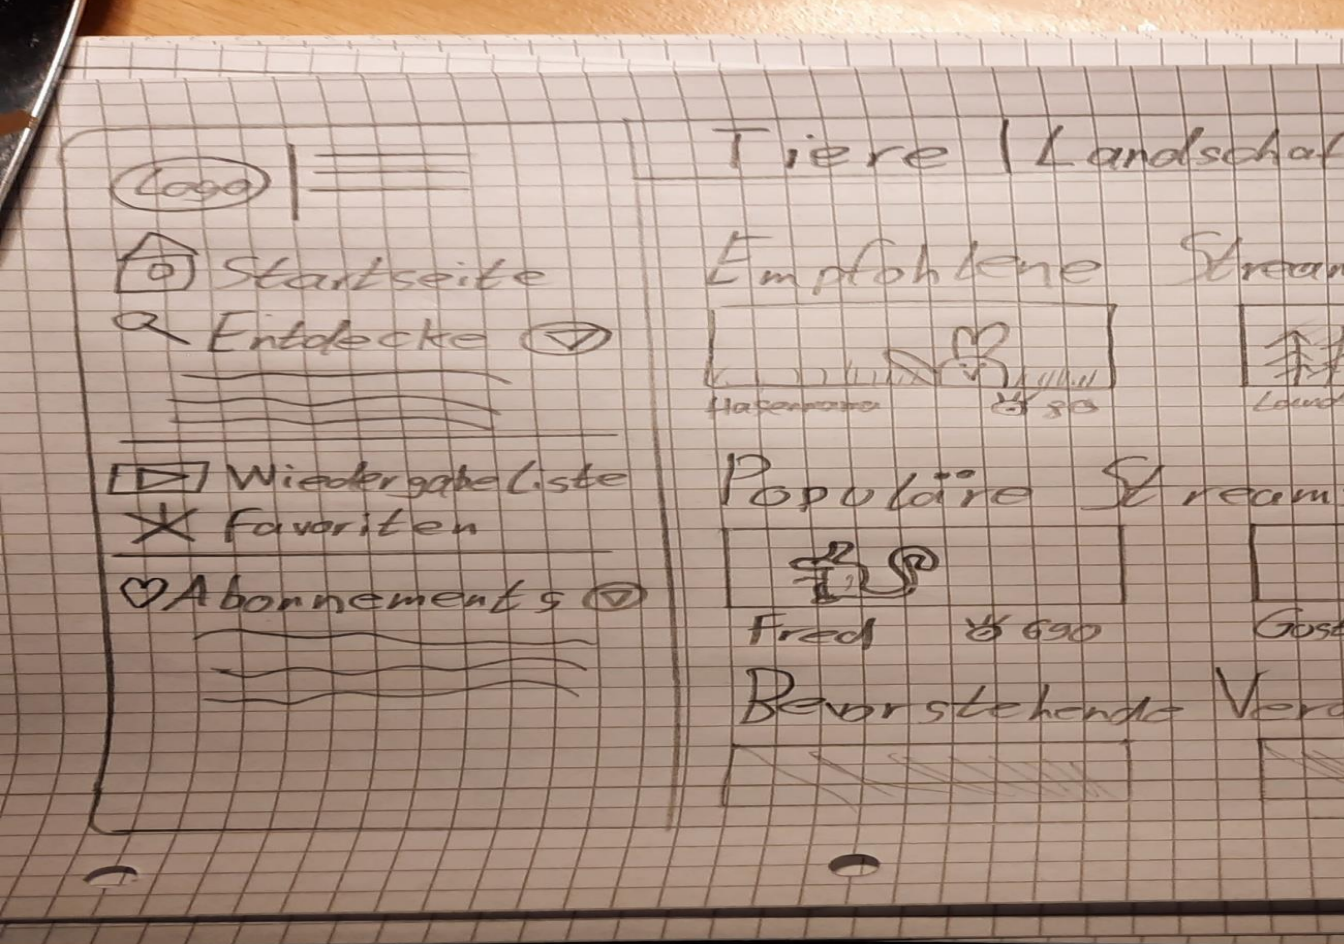 Logo
Startseite
Entdecke
Wiedergabeliste
Favoriten
Abonnements
Tiere | Landschaf
Empfohlene Stream
80
Populäre Stream
Fred 690
Bevorstehende Ver